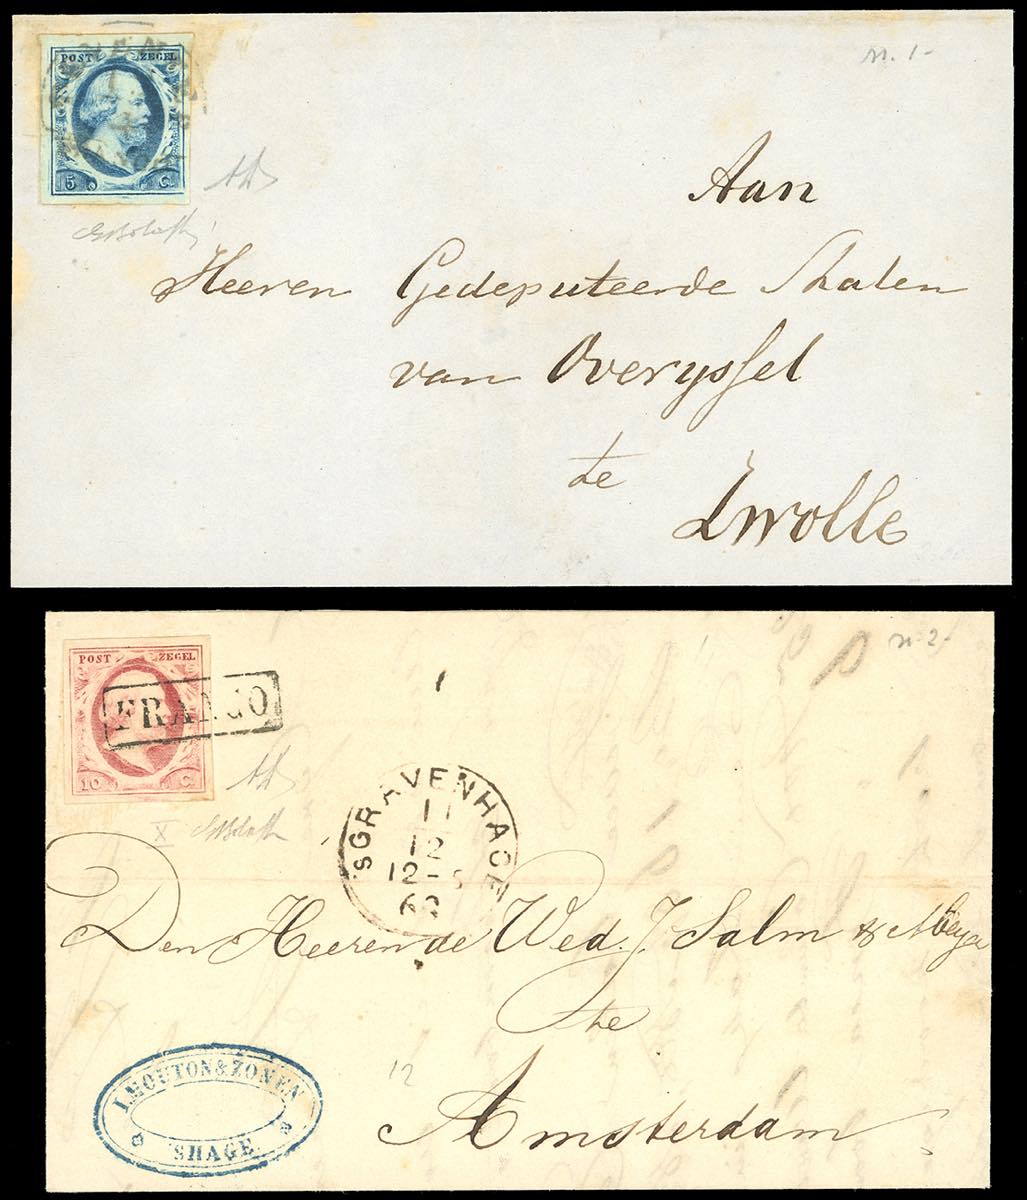 POST ZEGEL
5 C
n. 1-
Aan
Heeren Gedeputeerde Staten
van Overyssel
te
Zwolle
POST ZEGEL
10 C
FRANCO
n. 2-
'sGRAVENHAGE
11
12
12-
6
X
Den Heeren de Wed. J. Salm &
te
Amsterdam
12
I. MOUTON & ZONEN
'SHAGE